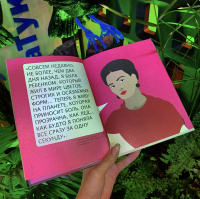 АТУМ
«СОВСЕМ НЕДАВНО,
НЕ БОЛЕЕ, ЧЕМ ДВА
ДНЯ НАЗАД, Я БЫЛА
РЕБЕНКОМ, КОТОРЫЙ
ЖИЛ В МИРЕ ЦВЕТОВ,
СТРОГИХ И ОСЯЗАЕМЫХ
ФОРМ... ТЕПЕРЬ Я ЖИВУ
НА ПЛАНЕТЕ, КОТОРАЯ
ПРИНОСИТ БОЛЬ. ОНА
ПРОЗРАЧНА, КАК ЛЕД.
КАК БУДТО Я ПОНЯЛА
ВСЁ СРАЗУ ЗА ОДНУ
СЕКУНДУ.